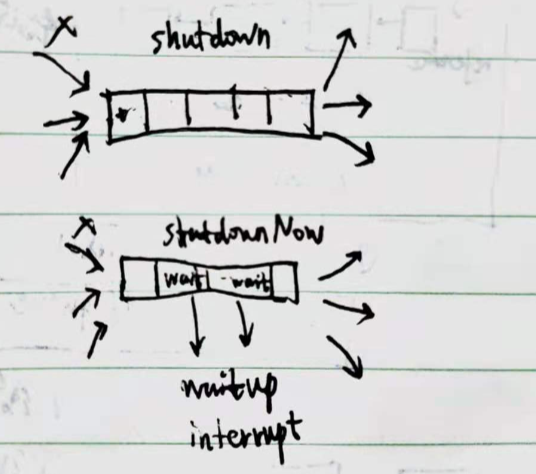 shutdown
x
x
shutdownNow
wait wait
waitup
interrupt